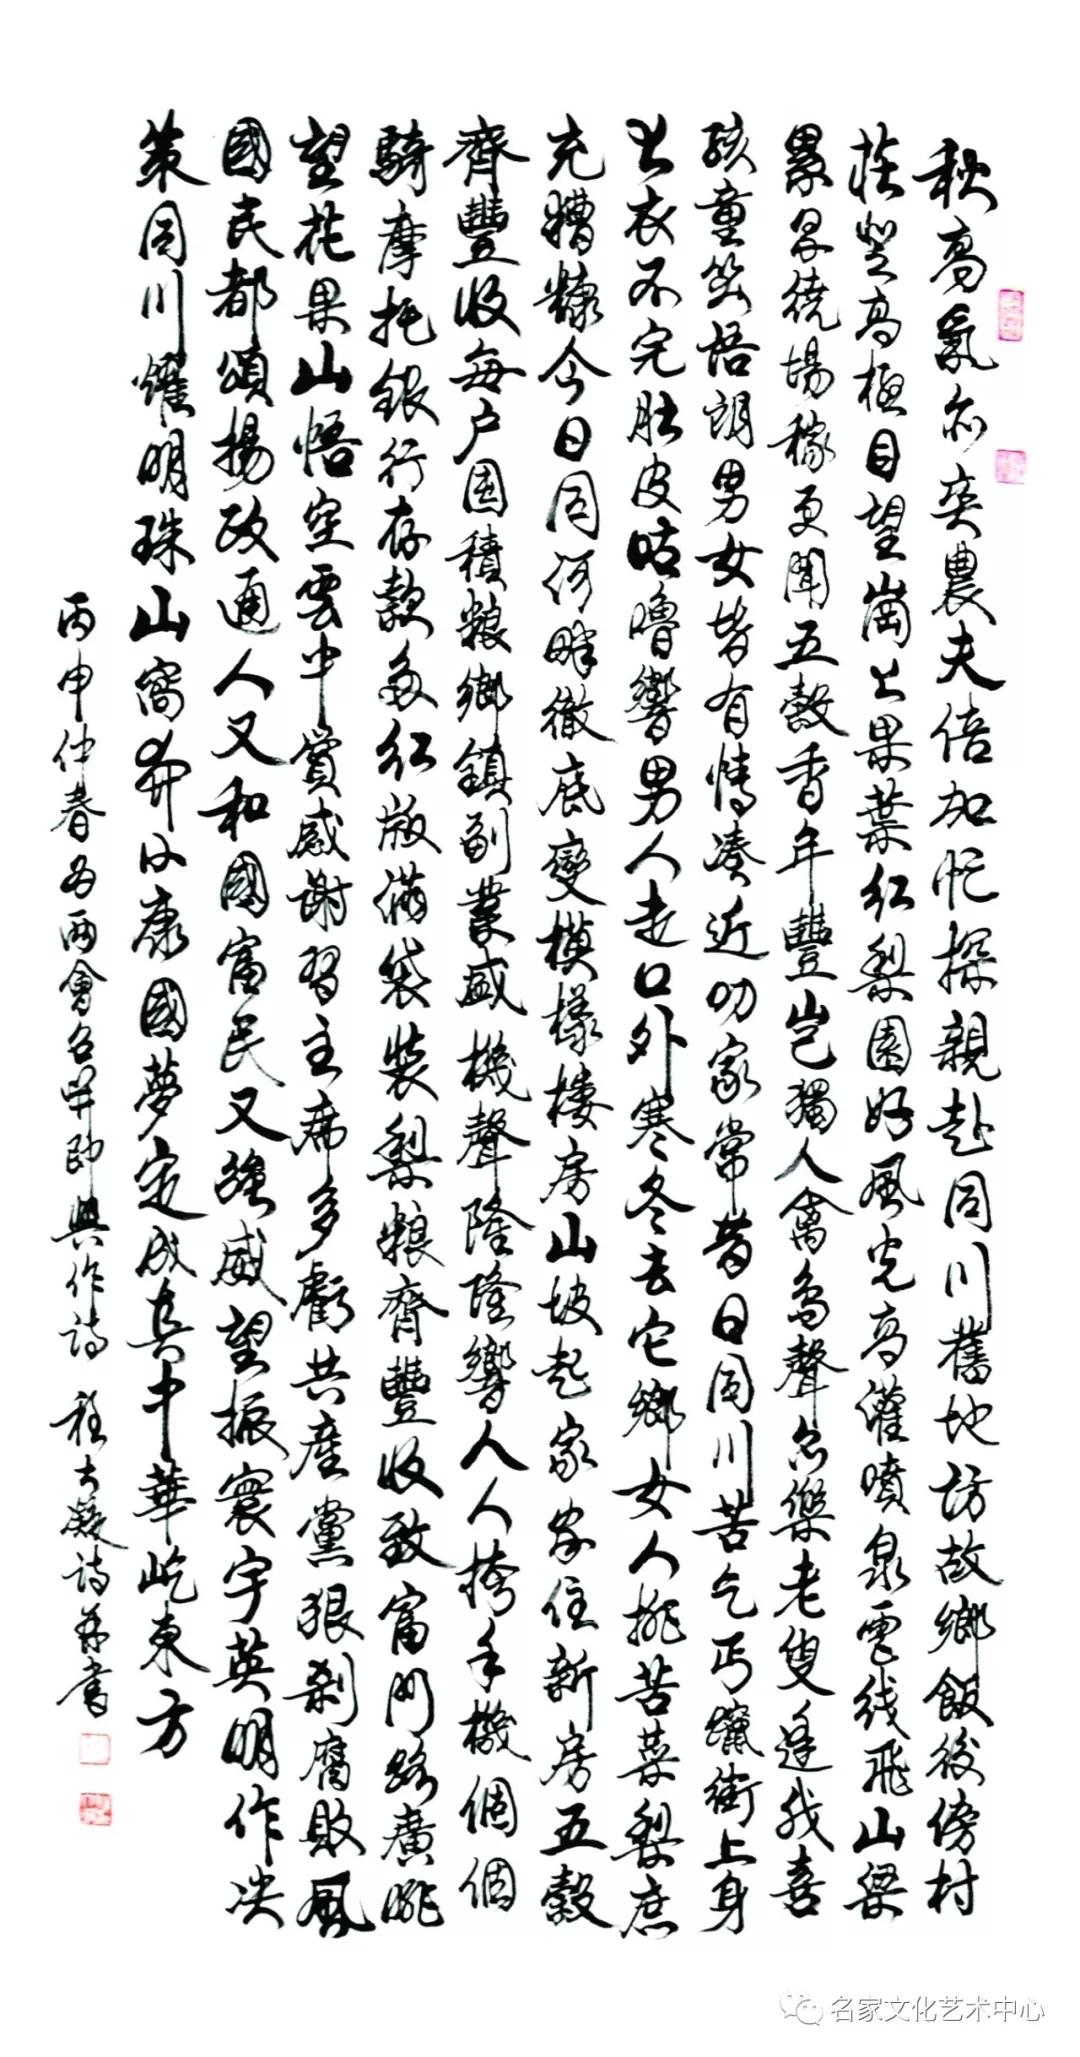 秋高氣亦爽農夫倍加忙探親赴同川舊地訪故鄉飯後傍村
莊登高極目望崗上果葉紅梨園好風光高灌噴泉電线飛山梁
累早繞場稼更聞五穀香年豐岂獨人禽鳥聲亦樂老叟逢我喜
孩童笑語朗男女皆有情凑近叨家常昔日同川苦乞丐躥街上身
上衣不完肚皮咕嚕響男人走口外寒冬去它鄉女人挑苦菜梨庶
充糟糠今日同河畔徹底變模樣楼房山坡起家家住新房五穀
齊豐收每户囤積粮鄉鎮副業盛機聲隆隆響人人挎手機個個
騎摩托銀行存款多红版满袋裝梨粮齊豐收致富門路廣眺
望花果山悟空雲中賞感谢習主席多虧共產黨狠刹腐敗風
國民都頌揚政通人又和國富民又強威望振寰宇英明作决
策同川耀明珠山窩奔小康國夢定成真中華屹東方
丙申仲春为两會召開即興作詩 程大凝诗并書
名家文化艺术中心